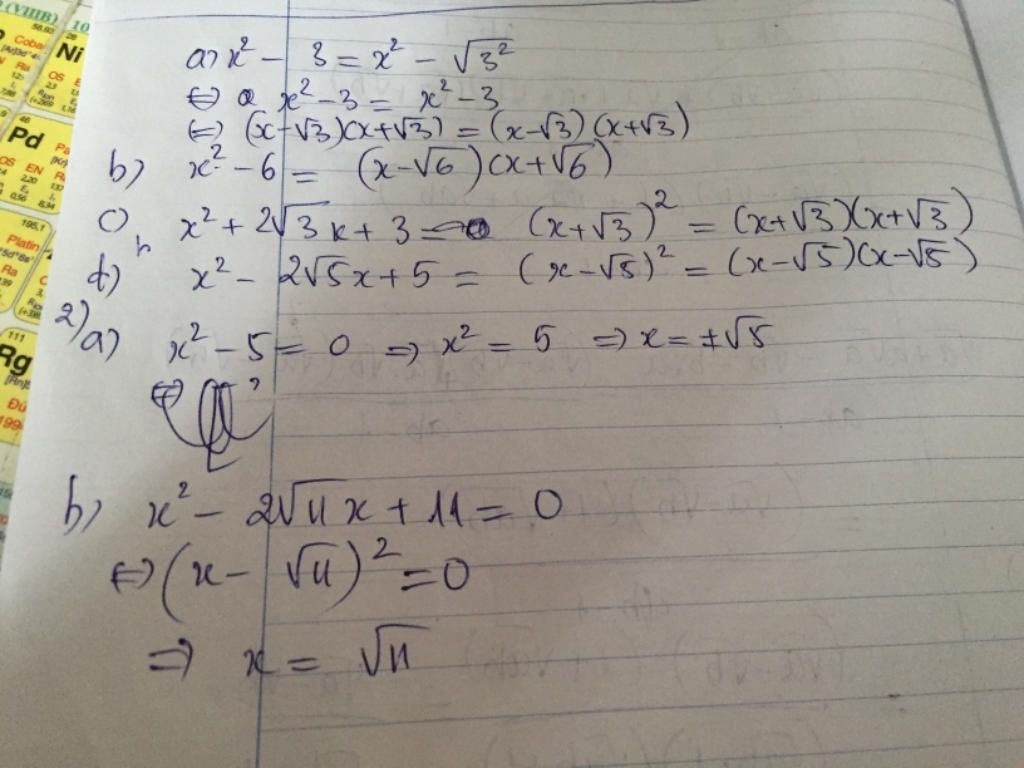 (VIIIB) 10
Coba
Ni
Pd
OS EN
195,1
Platin
Ra
111
Rg
a) x² - 3 = x² - √3²
⇔ x² - 3 = x² - 3
⇔ (x-√3)(x+√3) = (x-√3)(x+√3)
b) x² - 6 = (x-√6)(x+√6)
c) x² + 2√3x + 3 = (x+√3)² = (x+√3)(x+√3)
d) x² - 2√5x + 5 = (x-√5)² = (x-√5)(x-√5)
2) a) x² - 5 = 0 ⇒ x² = 5 ⇒ x = ±√5
⇔
b) x² - 2√11x + 11 = 0
⇔ (x - √11)² = 0
⇒ x = √11